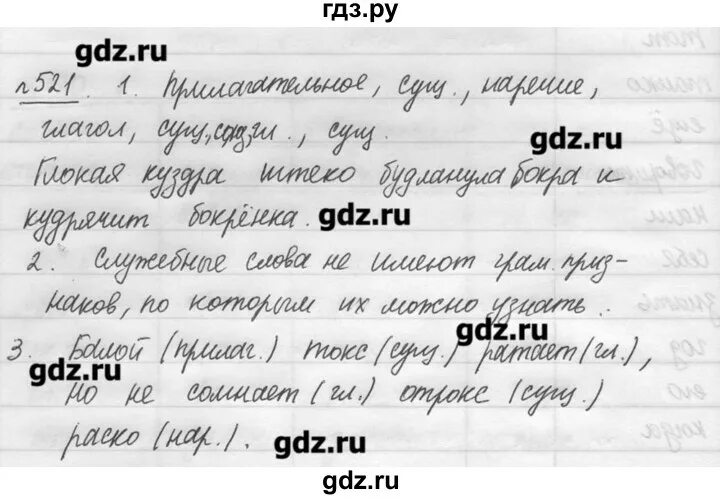 гдз.ру
gdz.ru
n521. 1. Прилагательное, сущ., наречие,
глагол, сущ., гл., сущ.
gdz.ru
Глокая куздра штеко будланула бокра и
кудрячит бокрёнка. gdz.ru
2. Служебные слова не имеют грам. приз-
наков, по которым их можно узнать.
gdz.ru
3. Балой (прилаг.) токс (сущ.) ратает (гл.),
gdz.ru
но не сомнает (гл.) отрокс (сущ.)
раско (нар.). gdz.ru
gdz.ru